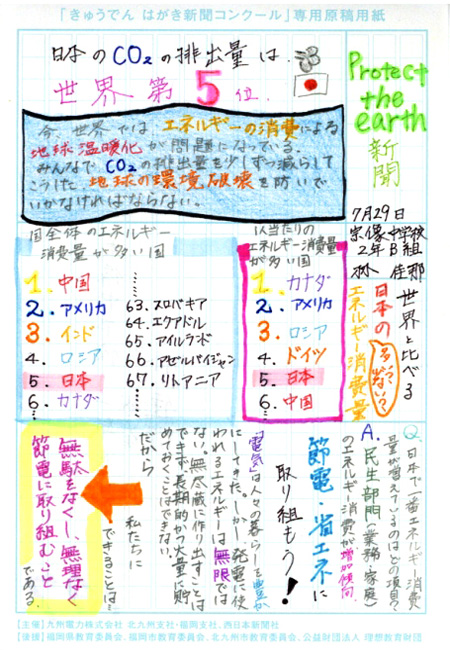 「きゅうでん はがき新聞コンクール」専用原稿用紙
日本のCO2の排出量は、
世界第5位.
Protect
the
earth
新聞
今、世界では、エネルギーの消費による
地球温暖化が問題になっている.
みんなで、CO2の排出量を少しずつ減らして
こうした、地球の環境破壊を防いで
いかなければならない。
7月29日
宗像中学校
2年B組
林 佳那
世界と比べる
日本の
多い?少ない?
エネルギー消費量
国全体のエネルギー
消費量が多い国
1. 中国
2. アメリカ
3. インド
4. ロシア
5. 日本
6. カナダ
63. スロバキア
64. エクアドル
65. アイルランド
66. アゼルバイジャン
67. リトアニア
1人当たりの
エネルギー消費量
が多い国
1. カナダ
2. アメリカ
3. ロシア
4. ドイツ
5. 日本
6. 中国
Q. 日本で一番エネルギー消費
量が増えているのはどの項目?
A. 民生部門(業務・家庭)
のエネルギー消費が増加傾向.
節電・省エネに
取り組もう!
「電気」は人々の暮らしを豊か
にしてきた。しかし、発電に使
われるエネルギーは無限では
ない。無尽蔵に作り出すことは
できず、長期的かつ大量に貯
めておくことはできない。
だから
私たちに
できることは…
無駄をなくし、無理なく
節電に取り組むこと
である.
【主催】九州電力株式会社 北九州支社・福岡支社、西日本新聞社
【後援】福岡県教育委員会、福岡市教育委員会、北九州市教育委員会、公益財団法人 理想教育財団